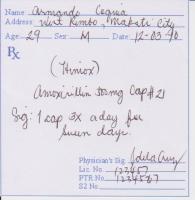 Name: Armando Cequia
Address: West Rembo, Makati City
Age: 29 Sex: M Date: 12-03-90
Rx
(Himox)
Amoxicillin 500mg Cap # 21
Sig: 1 cap 3x a day for
seven days.
Physician's Sig. Jdela Cruz
Lic. No. 123457
PTR No. 1234567
S2 No.